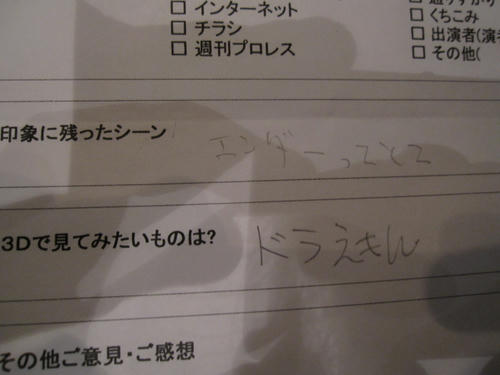 □ インターネット
□ チラシ
□ 週刊プロレス
□ くちこみ
□ 出演者(演者
□ その他(
印象に残ったシーン
エンダーってとて
3Dで見てみたいものは?
ドラえもん
その他ご意見・ご感想